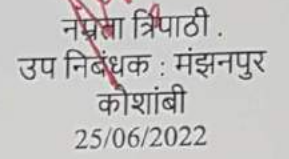 नम्रता त्रिपाठी .
उप निबंधक : मंझनपुर
कौशांबी
25/06/2022